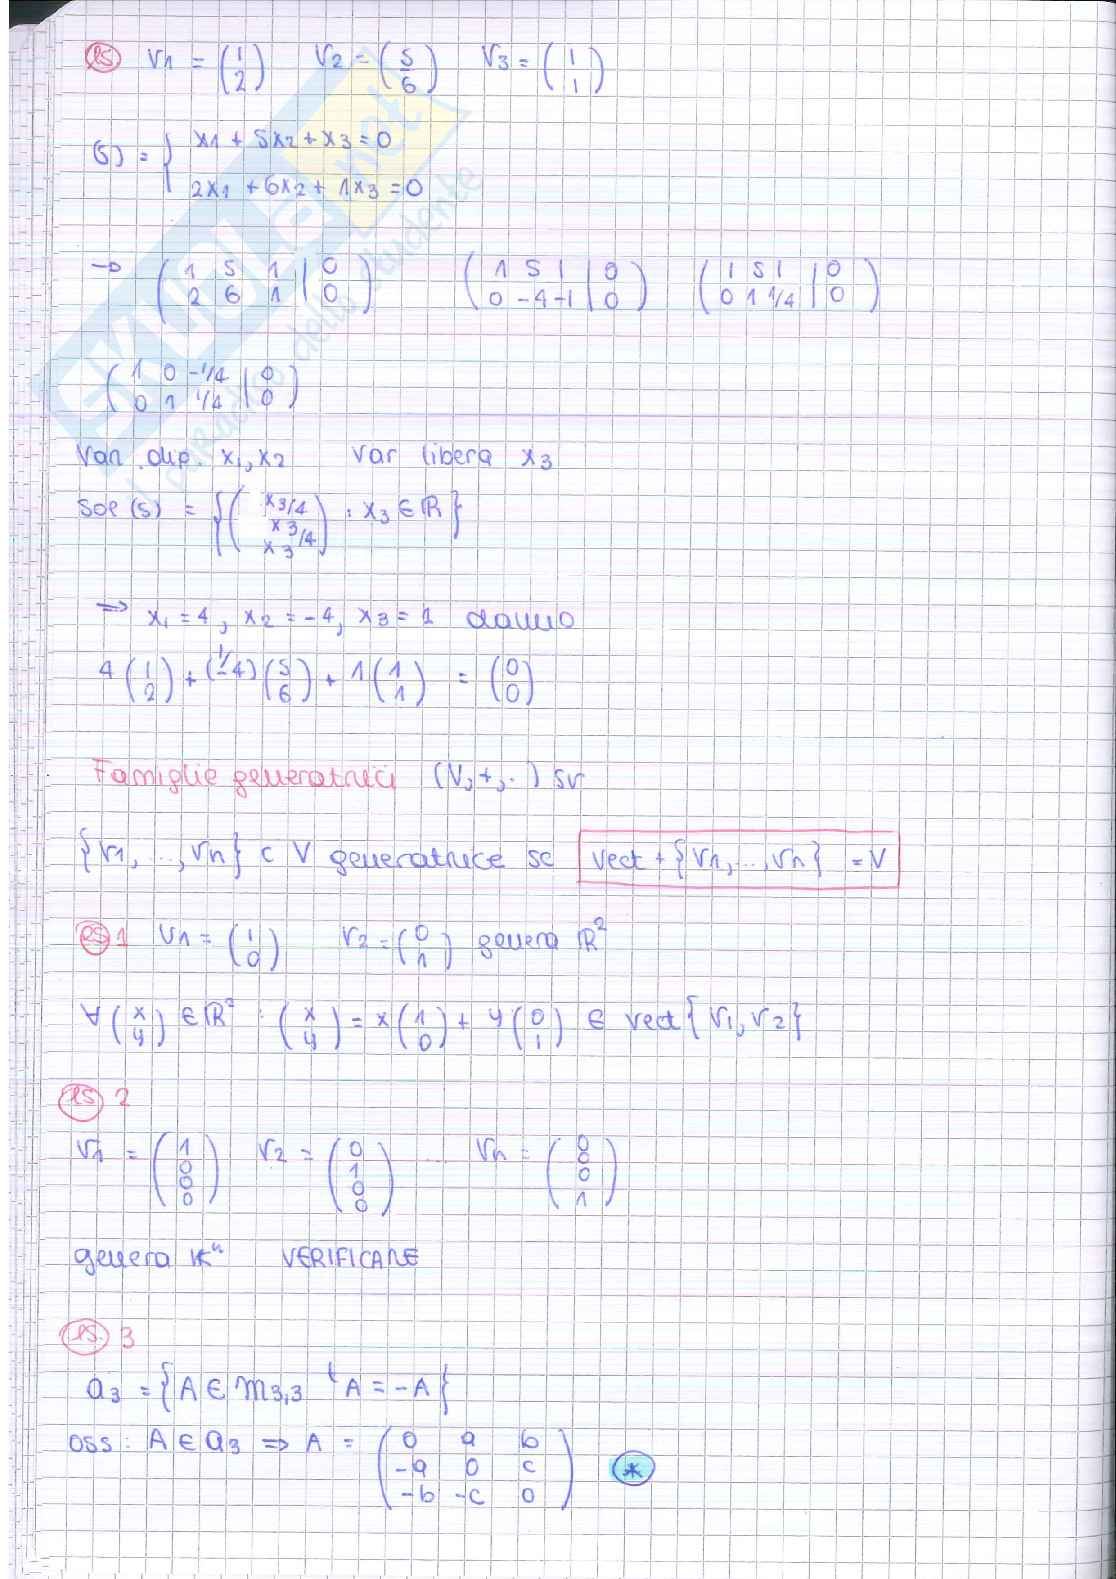 es V1 = (1 2) V2 = (5 6) V3 = (1 1)
(S) = { x1 + 5x2 + x3 = 0
2x1 + 6x2 + 1x3 = 0
→ (1 5 1 | 0 (1 5 1 | 0 (1 5 1 | 0
2 6 1 | 0) 0 -4 -1 | 0) 0 1 1/4 | 0)
(1 0 -1/4 | 0
0 1 1/4 | 0)
Var. dip. x1, x2 var libera x3
Sol (S) = {(x3/4 x3/4 x3) : x3 ∈ ℝ}
⇒ x1 = 4, x2 = -4, x3 = 1 danno
4 (1 2) + (-4) (5 6) + 1 (1 1) = (0 0)
Famiglie generatrici (V, +, ·) sv
{V1, ..., Vn} ⊂ V generatrice se vect + {V1, ..., Vn} = V
es 1 V1 = (1 0) V2 = (0 1) genera ℝ²
∀ (x y) ∈ ℝ² : (x y) = x (1 0) + y (0 1) ∈ vect {V1, V2}
es 2
V1 = (1 0 0 0) V2 = (0 1 0 0) ... Vn = (0 0 0 1)
genera Kⁿ VERIFICARE
es. 3
a3 = {A ∈ M3,3 ᵗA = -A}
oss: A ∈ a3 ⇒ A = (0 a b
-a 0 c *
-b -c 0)
SKUOLA.net
il paradiso dello studente